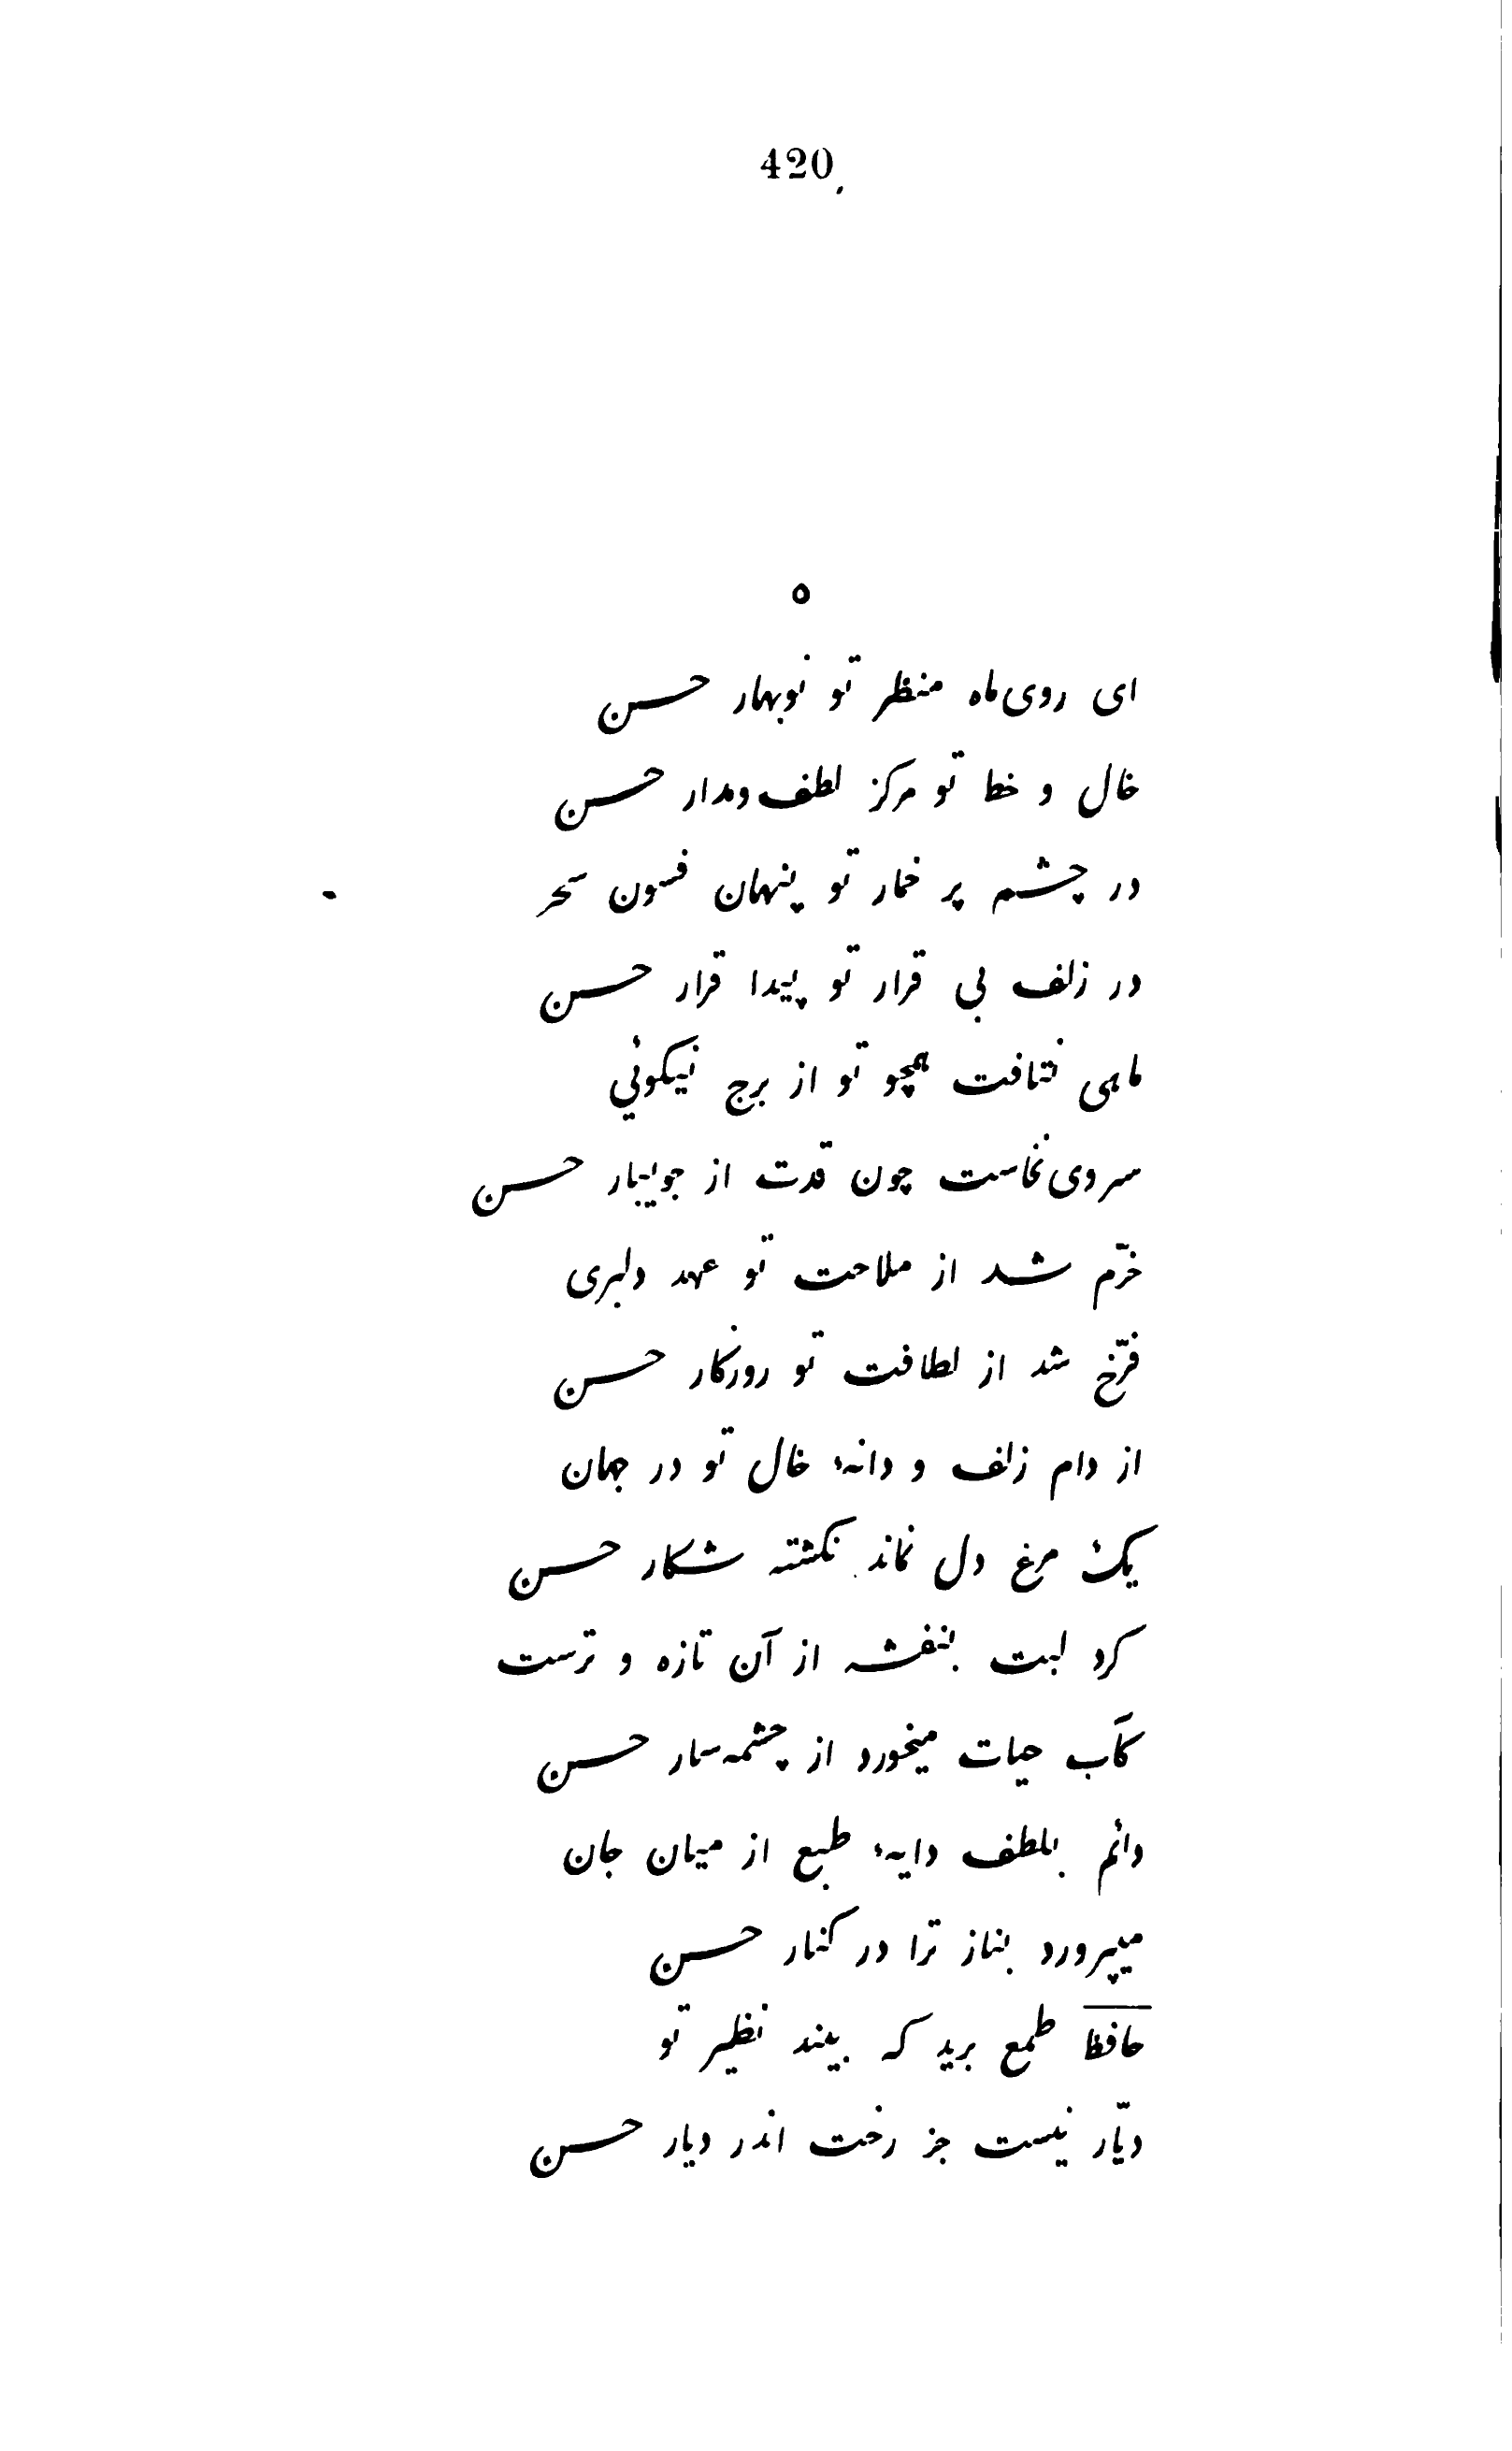 420
٥
ای روی ماه منظر تو نوبهار حسن
خال و خط تو مرکز لطف ومدار حسن
در چشم پر خمار تو پنهان فسون سحر
در زلف بی قرار تو پیدا قرار حسن
ماهی نتافت همچو تو از برج نیکوئی
سروی نخاست چون قدت از جویبار حسن
خرّم شد از ملاحت تو عهد دلبری
فرّخ شد از لطافت تو روزکار حسن
از دام زلف و دانهٔ خال تو در جهان
یک مرغ دل نماند نکشته شکار حسن
کرد لبت بنفشه از آن تازه و ترست
کآب حیات میخورد از چشمه‌سار حسن
دائم بلطف دایهٔ طبع از میان جان
میپرورد بناز ترا در کنار حسن
حافظ طمع برید که بیند نظیر تو
دیّار نیست جز رخت اندر دیار حسن